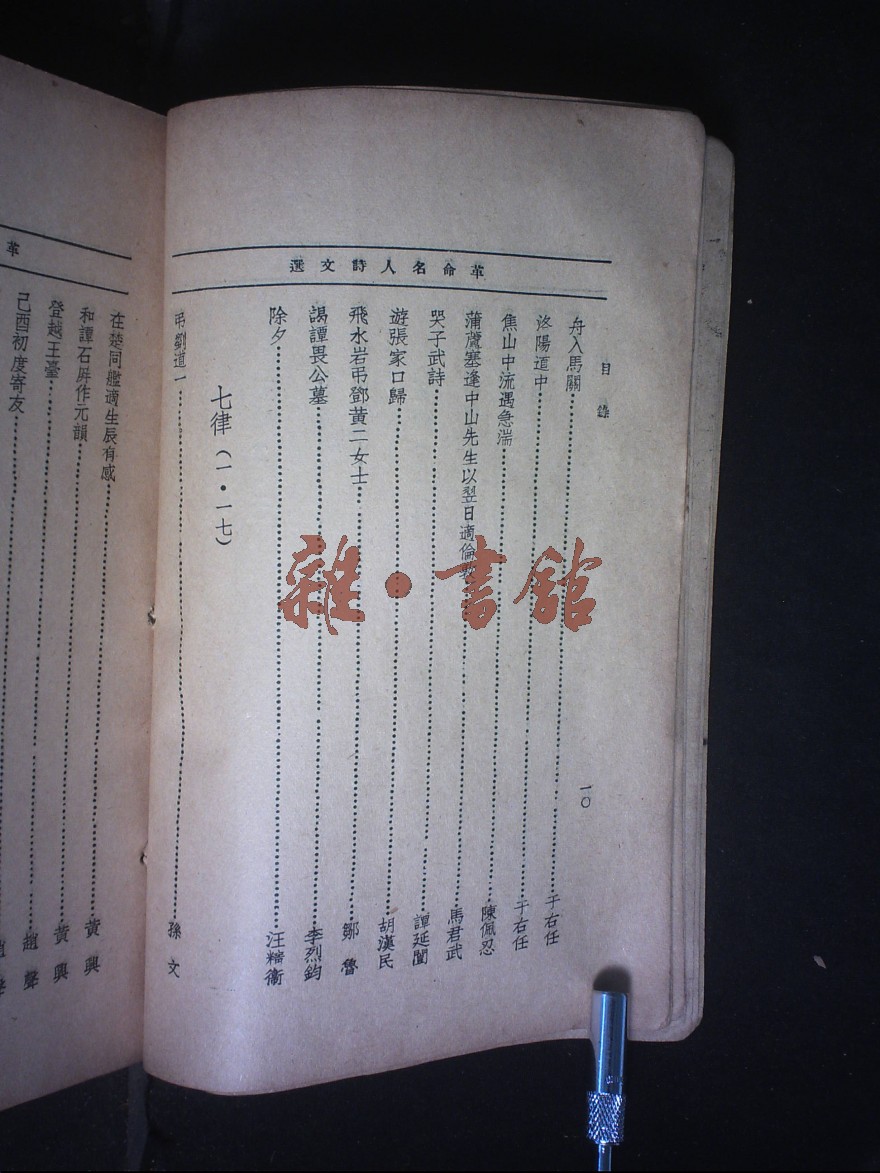 革命名人詩文選
目錄
一〇
舟入馬關 于右任
洛陽道中 于右任
焦山中流遇急湍 陳佩忍
蒲蘆塞逢中山先生以翌日適倫敦 馬君武
哭子武詩 譚延闓
遊張家口歸 胡漢民
飛水岩弔鄧黃二女士 鄒魯
謁譚畏公墓 李烈鈞
除夕 汪精衞
七律(一・一七)
弔劉道一 孫文
革
在楚同艦適生辰有感 黃興
和譚石屏作元韻 黃興
登越王臺 趙聲
己酉初度寄友 趙聲
雜・書館